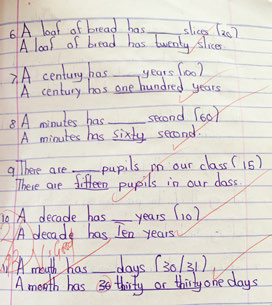 6. A loaf of bread has ____ slices (20)
A loaf of bread has twenty slices.
7. A century has ____ years (100)
A century has one hundred years
8 A minutes has ____ second (60)
A minutes has sixty second.
9 There are ____ pupils in our class (15)
There are fifteen pupils in our class.
10 A decade has __ years (10)
A decade has Ten years
11 A month has ____ days (30/31)
A month has 30 thirty or thirty one days